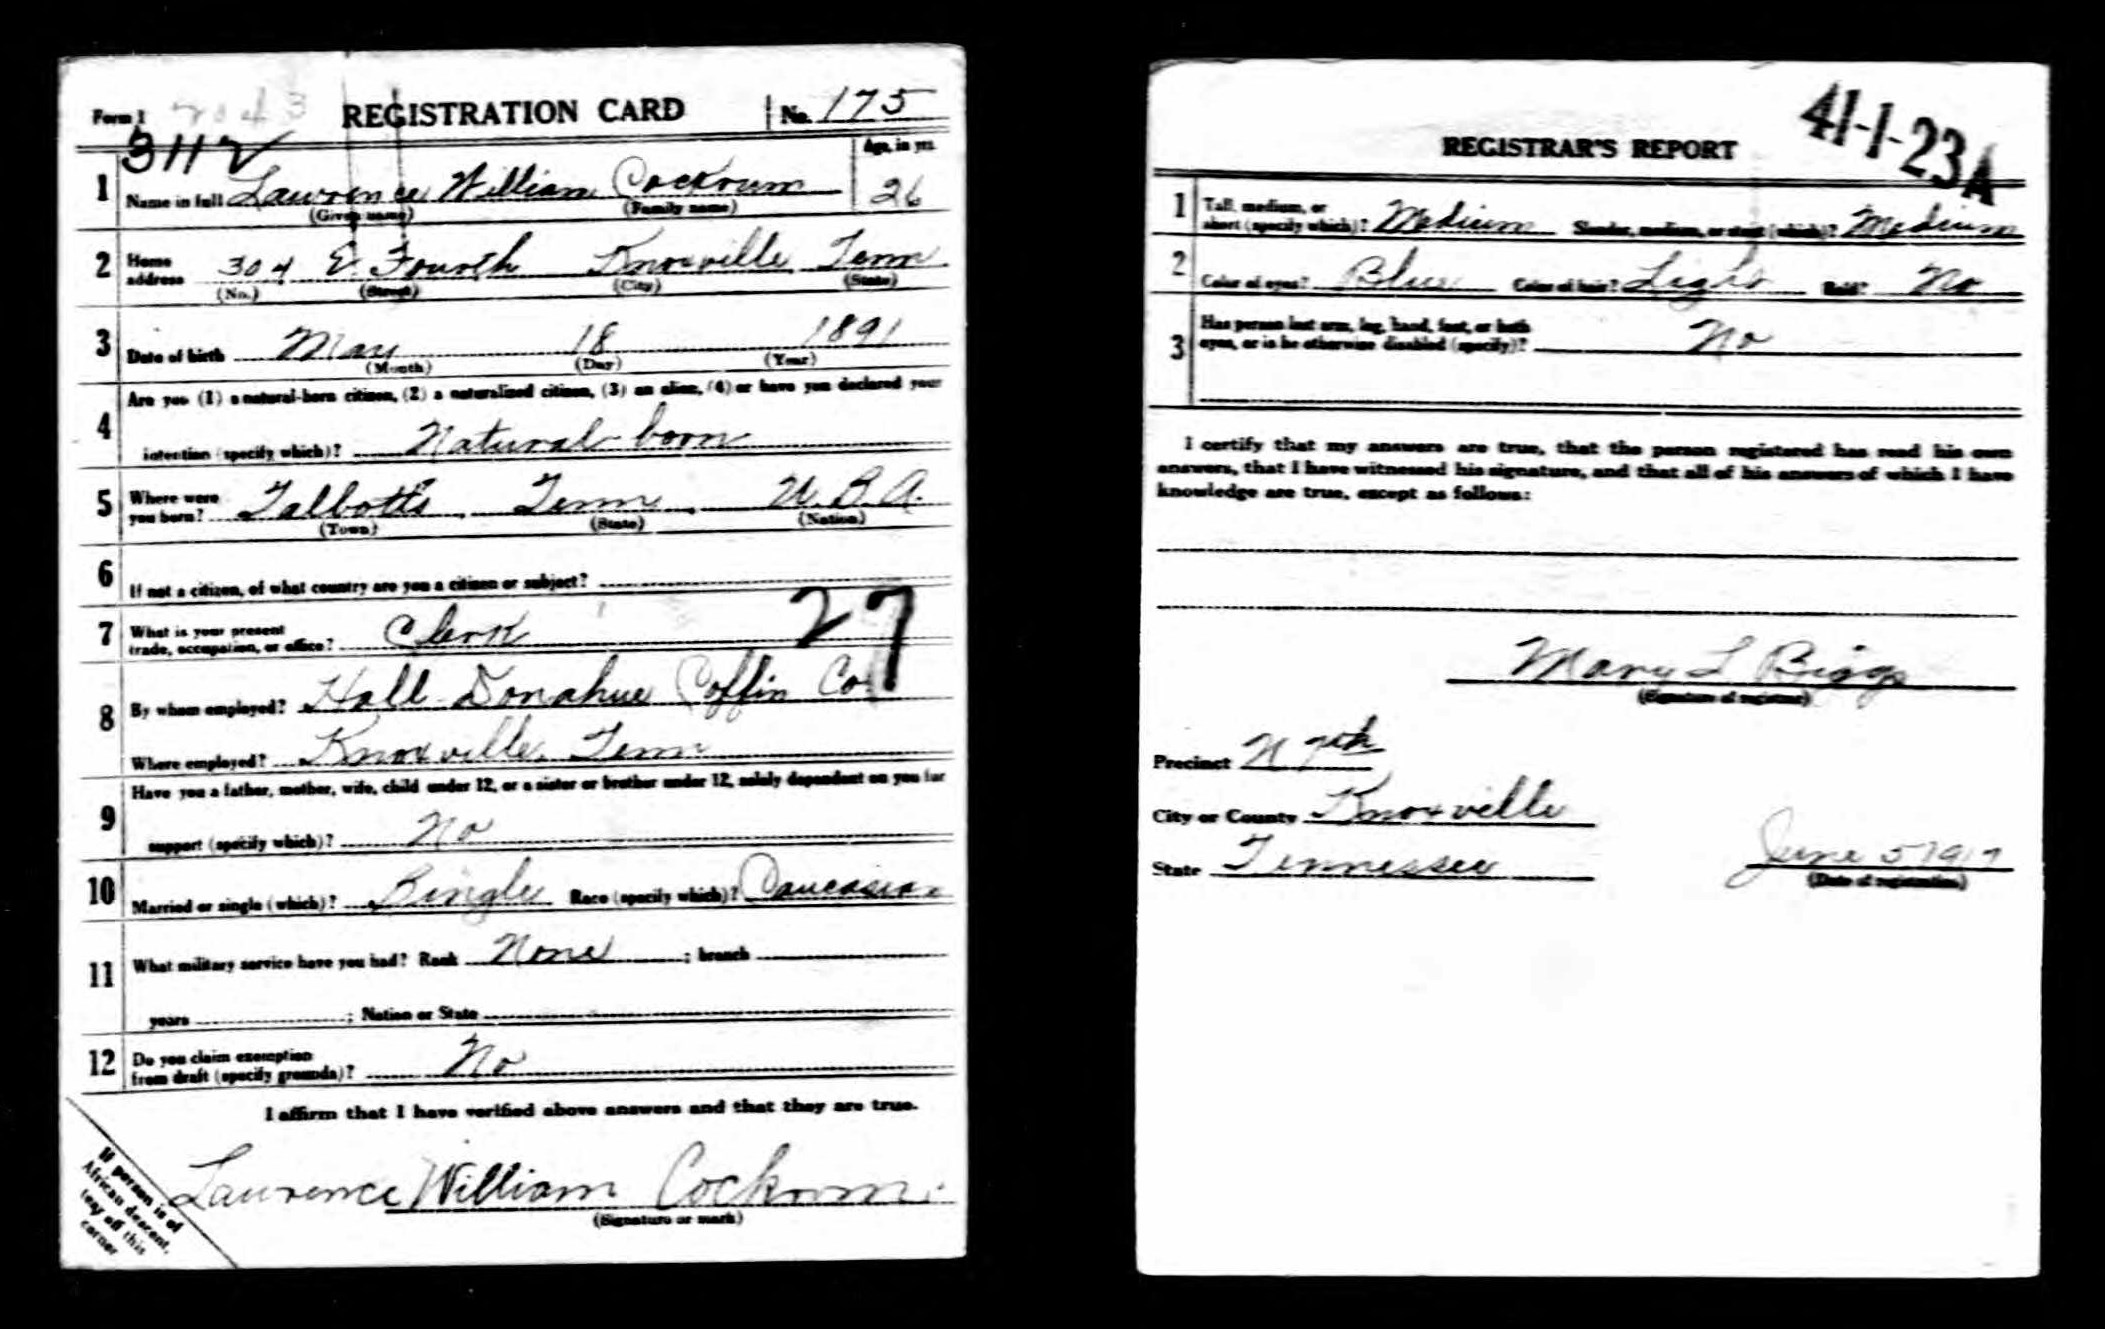 Form 1 2043 REGISTRATION CARD No. 175
3112
Age, in yrs.
1 Name in full Lawrence William Cockrum 26
(Given name) (Family name)
2 Home address 304 E. Fourth Knoxville Tenn
(No.) (Street) (City) (State)
3 Date of birth May 18 1891
(Month) (Day) (Year)
4 Are you (1) a natural-born citizen, (2) a naturalized citizen, (3) an alien, (4) or have you declared your
intention (specify which)? Natural born
5 Where were you born? Talbotts, Tenn, U.S.A.
(Town) (State) (Nation)
6 If not a citizen, of what country are you a citizen or subject?
7 What is your present trade, occupation, or office? Clerk 27
8 By whom employed? Hall-Donahue Coffin Co.
Where employed? Knoxville, Tenn
9 Have you a father, mother, wife, child under 12, or a sister or brother under 12, solely dependent on you for
support (specify which)? No
10 Married or single (which)? Single Race (specify which)? Caucasian
11 What military service have you had? Rank None ; branch
years ; Nation or State
12 Do you claim exemption from draft (specify grounds)? No
I affirm that I have verified above answers and that they are true.
Lawrence William Cockrum.
(Signature or mark)
If person is of
African descent,
tear off this
corner
41-1-23A
REGISTRAR'S REPORT
1 Tall, medium, or short (specify which)? Medium Slender, medium, or stout (which)? Medium
2 Color of eyes? Blue Color of hair? Light Bald? No
3 Has person lost arm, leg, hand, foot, or both
eyes, or is he otherwise disabled (specify)? No
I certify that my answers are true, that the person registered has read his own
answers, that I have witnessed his signature, and that all of his answers of which I have
knowledge are true, except as follows:
Mary L Briggs
(Signature of registrar)
Precinct N 7th
City or County Knoxville
State Tennessee June 5 1917
(Date of registration)